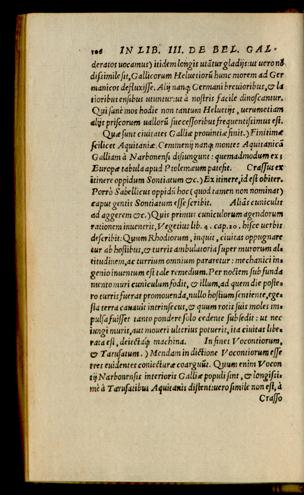 106 IN LIB. III. DE BEL. GAL-
deratos uocamus) itidem longis utātur gladijs: ut uero nō
dissimile sit, Gallicorum Heluetiorū hunc morem ad Ger
manicos defluxisse. Alij nanq; Germani breuioribus, & la
tioribus ensibus utuntur: ut à nostris facile dinoscantur.
Qui sanè mos hodie non tantum Heluetijs, uerumetiam
alijs priscorum uallorū successoribus frequentissimus est.
Quæ sunt ciuitates Galliæ prouintiæ finit.) Finitimæ
scilicet Aquitaniæ. Cemmenij nanq; montes Aquitanicā
Galliam à Narbonensi disiungunt: quemadmodum ex
Europæ tabula apud Ptolemæum patescit. Crassus ex
itinere oppidum Sontiatum &c.) Ex itinere, id est obiter.
Porrò Sabellicus oppidi hoc (quod tamen non nominat)
caput gentis Sontiatum esse scribit. Aliàs cuniculis
ad aggerem &c.) Quis primus cuniculorum agendorum
rationem inuenerit, Vegetius lib. 4. cap. 20. hisce uerbis
describit: Quum Rhodiorum, inquit, ciuitas oppugnare
tur ab hostibus, & turris ambulatoria super murorum al-
titudinem, ac turrium omnium pararetur: mechanici in-
genio inuentum est tale remedium. Per noctem sub funda
mento muri cuniculum fodit, & illum, ad quem die poste-
ro turris fuerat promouenda, nullo hostium sentiente, ege-
sta terra cauauit intrinsecus, & quum rotis suis moles im-
pulsa fuisset tanto pondere solo cedente subsedit: ut nec
iungi muris, aut moueri ulterius potuerit, ita ciuitas libe-
rata est, deiectaq; machina. In fines Vocontiorum,
& Tarusatum.) Mendam in dictione Vocontiorum esse
tres euidentes coniecturæ coarguūt. Quum enim Vocon
tij Narbonensis interioris Galliæ populi sint, & longissi-
mè à Tarusatibus Aquitanis distent: uero simile non est, à
Crasso